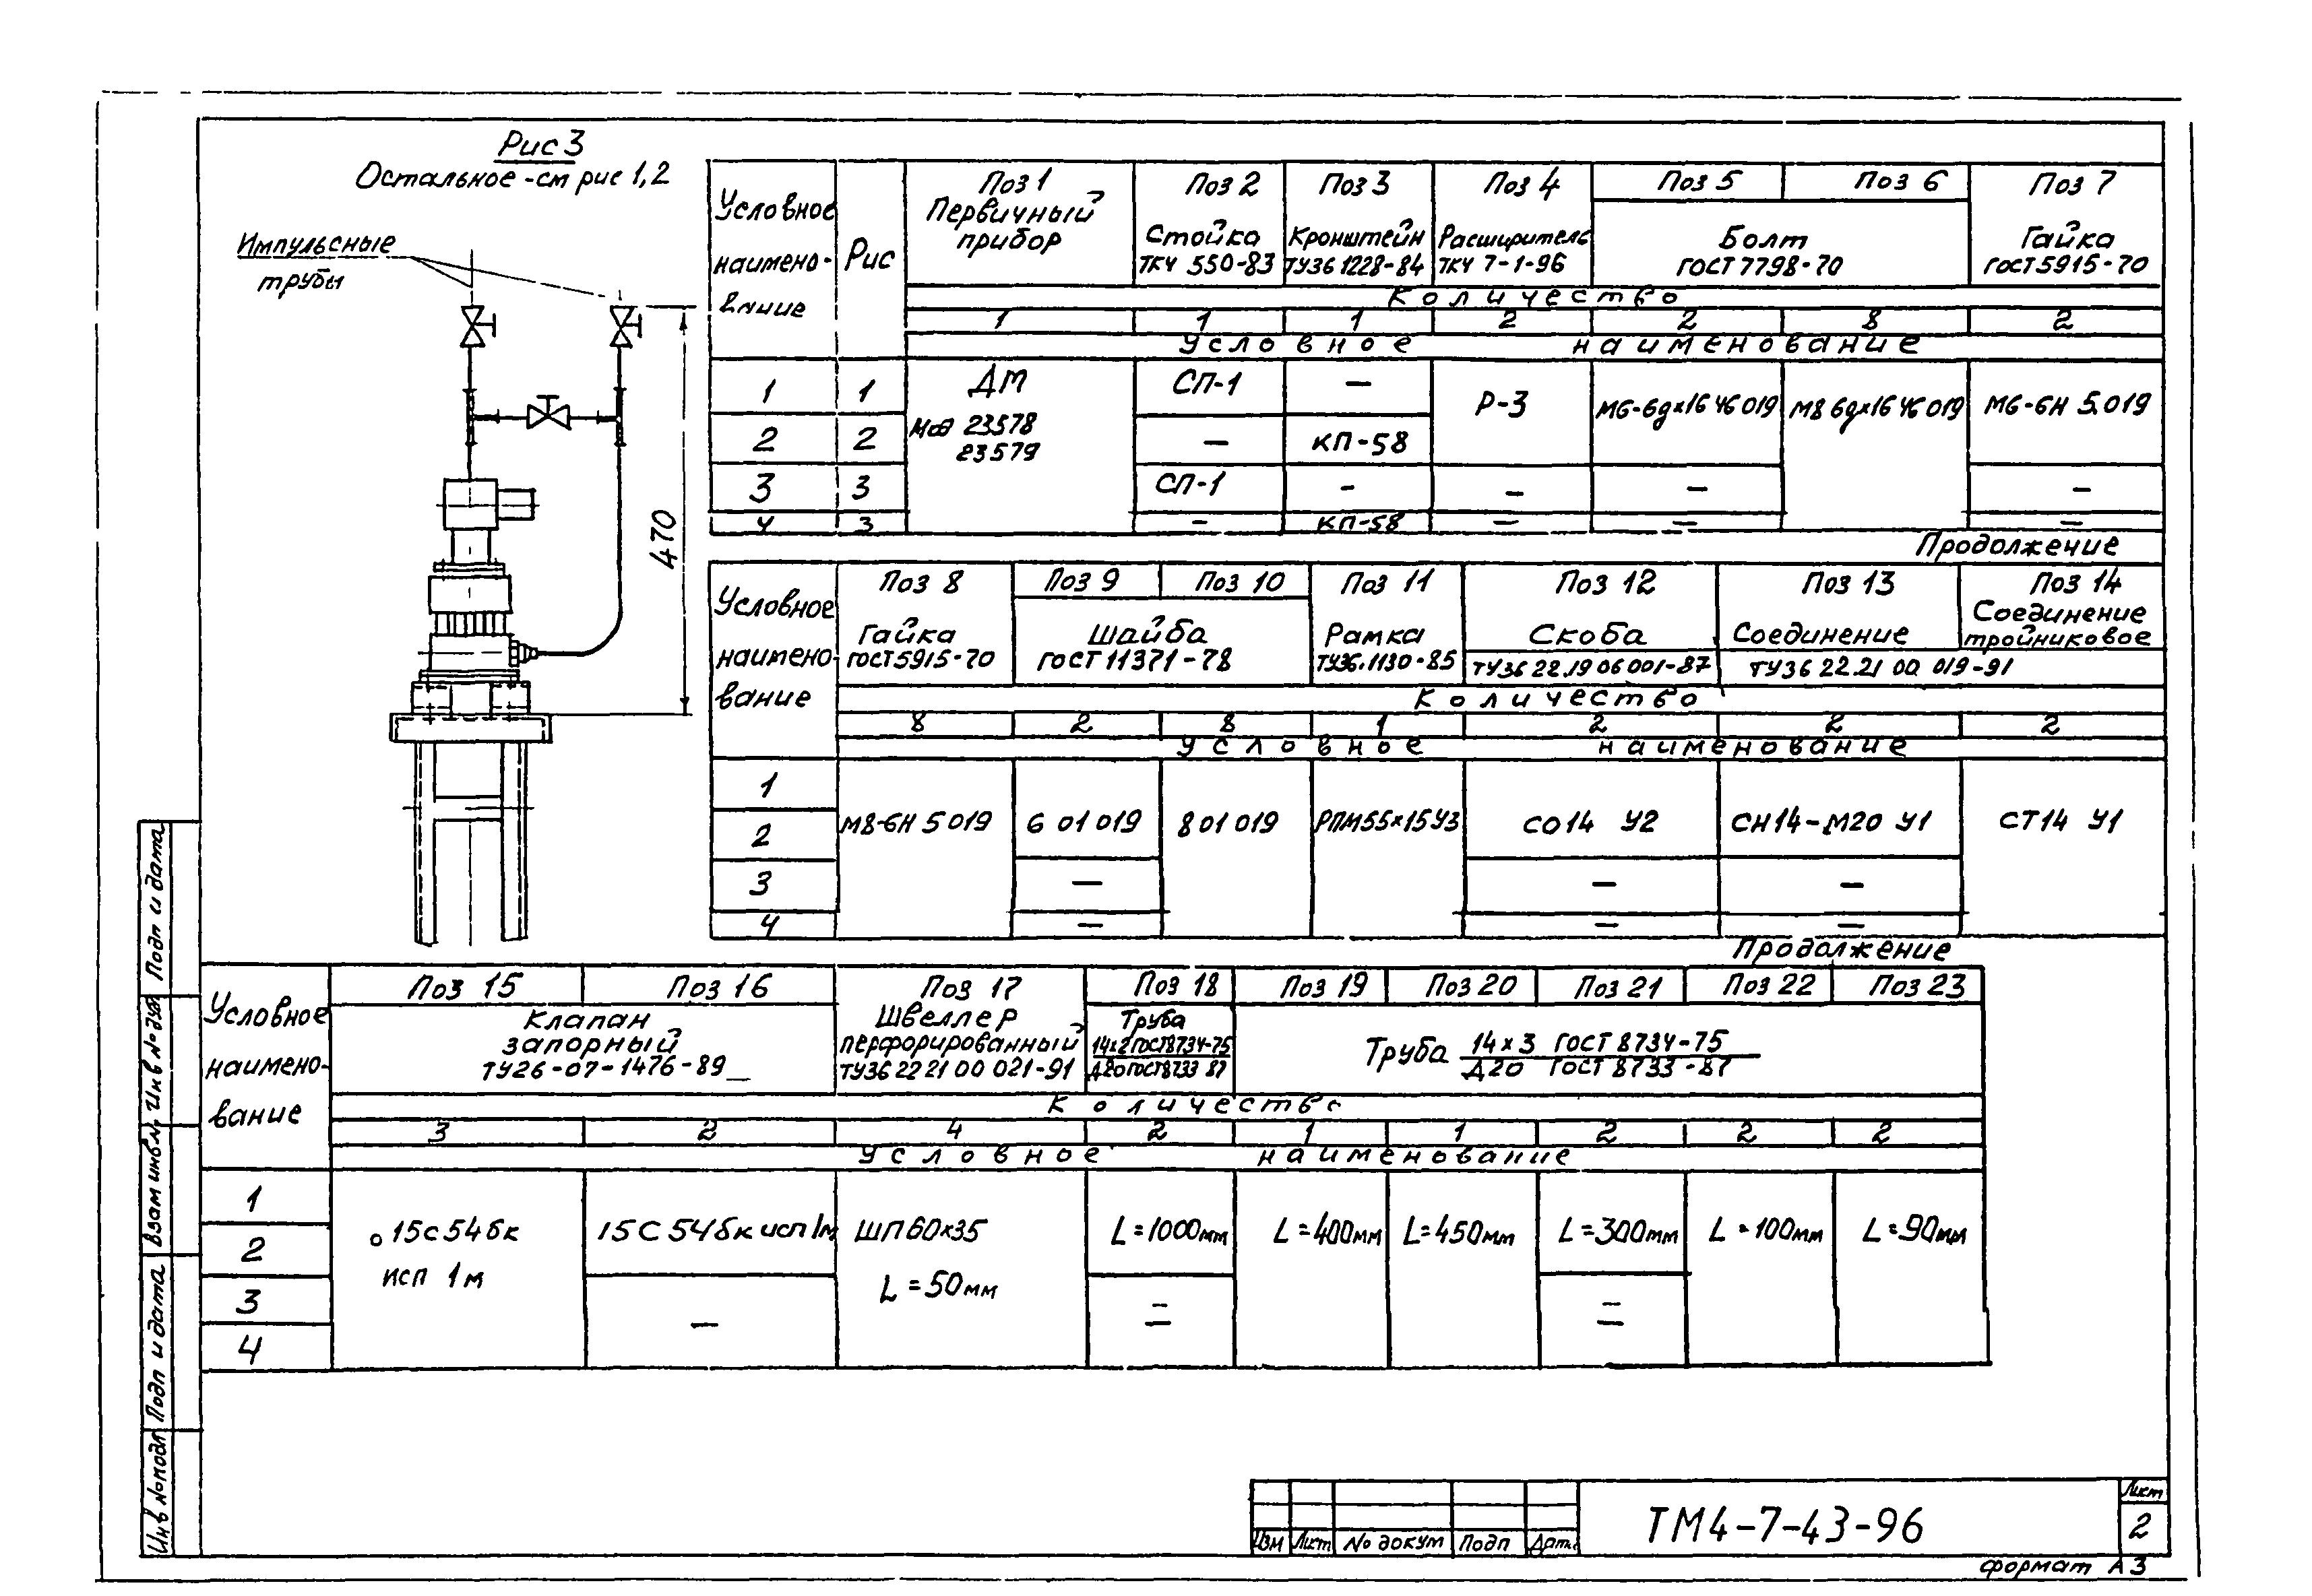 Рис 3
Остальное - см рис 1, 2
Импульсные
трубы
470
Условное наимено- вание | Рис | Поз 1 | Поз 2 | Поз 3 | Поз 4 | Поз 5 | Поз 6 | Поз 7
Первичный прибор | Стойка | Кронштейн | Расширитель | Болт | Гайка
ТК4 550-83 | ТУ36 1228-84 | ТК4 7-1-96 | ГОСТ 7798-70 | ГОСТ 5915-70
Количество
1 | 1 | 1 | 2 | 2 | 8 | 2
Условное наименование
1 | 1 | ДМ | СП-1 | — | Р-3 | М6-6gх16 46 019 | М8 6gх16 46 019 | М6-6Н 5.019
Мод 23578
23579
2 | 2 | — | КП-58
3 | 3 | СП-1 | - | — | — | —
4 | 3 | - | КП-58 | — | — | —
Продолжение
Условное наимено- вание | Поз 8 | Поз 9 | Поз 10 | Поз 11 | Поз 12 | Поз 13 | Поз 14
Гайка | Шайба | Рамка | Скоба | Соединение | Соединение тройниковое
ГОСТ 5915-70 | ГОСТ 11371-78 | ТУ36.1130-85 | ТУ36 22.19 06 001-87 | ТУ36 22.21 00 019-91
Количество
8 | 2 | 8 | 1 | 2 | 2 | 2
Условное наименование
1
2 | М8-6Н 5 019 | 6 01 019 | 8 01 019 | РПМ55х15У3 | СО14 У2 | СН14-М20 У1 | СТ14 У1
3 | — | — | —
4 | — | — | —
Продолжение
Условное наимено- вание | Поз 15 | Поз 16 | Поз 17 | Поз 18 | Поз 19 | Поз 20 | Поз 21 | Поз 22 | Поз 23
Клапан запорный | Швеллер перфорированный | Труба | Труба
ТУ26-07-1476-89 | ТУ36 22 21 00 021-91 | 14х2 ГОСТ 8734-75 | 14х3 ГОСТ 8734-75
Д20 ГОСТ 8733 87 | Д20 ГОСТ 8733-87
Количество
3 | 2 | 4 | 2 | 1 | 1 | 2 | 2 | 2
Условное наименование
1
2 | 15с54бк | 15с54бк исп 1м | ШП 60х35 | L=1000мм | L=400мм | L=450мм | L=300мм | L=100мм | L=90мм
исп 1м | L=50мм
3 | — | —
4 | — | — | —
Подп и дата
Инв № дубл
Взам инв №
Подп и дата
Инв № подл
Изм Лист № докум Подп Дата
ТМ4-7-43-96
Лист
2
формат А3